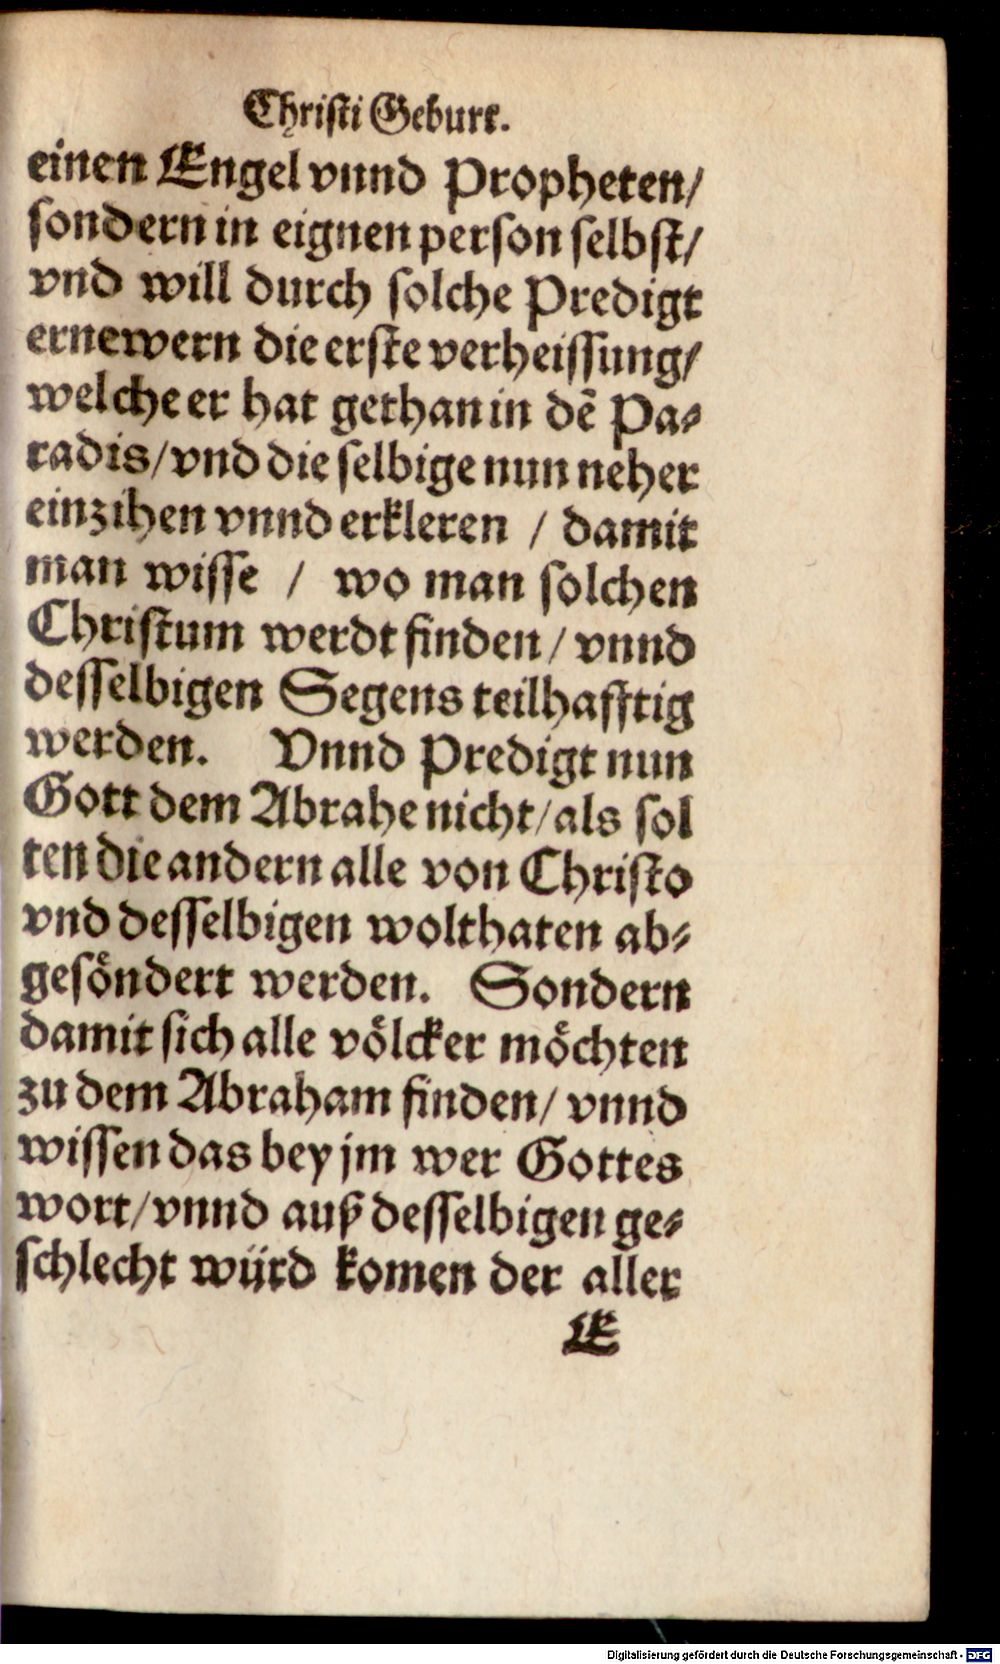 Christi Geburt.
einen Engel vnnd Propheten/
sondern in eignen person selbst/
vnd will durch solche Predigt
ernewern die erste verheissung/
welche er hat gethan in dē Pa⸗
radis/vnd die selbige nun neher
einzihen vnnd erkleren / damit
man wisse / wo man solchen
Christum werdt finden/ vnnd
desselbigen Segens teilhafftig
werden. Vnnd Predigt nun
Gott dem Abrahe nicht/als sol
ten die andern alle von Christo
vnd desselbigen wolthaten ab⸗
gesöndert werden. Sondern
damit sich alle völcker möchten
zu dem Abraham finden/ vnnd
wissen das bey jm wer Gottes
wort/vnnd auß desselbigen ge⸗
schlecht würd komen der aller
E
Digitalisierung gefördert durch die Deutsche Forschungsgemeinschaft - DFG